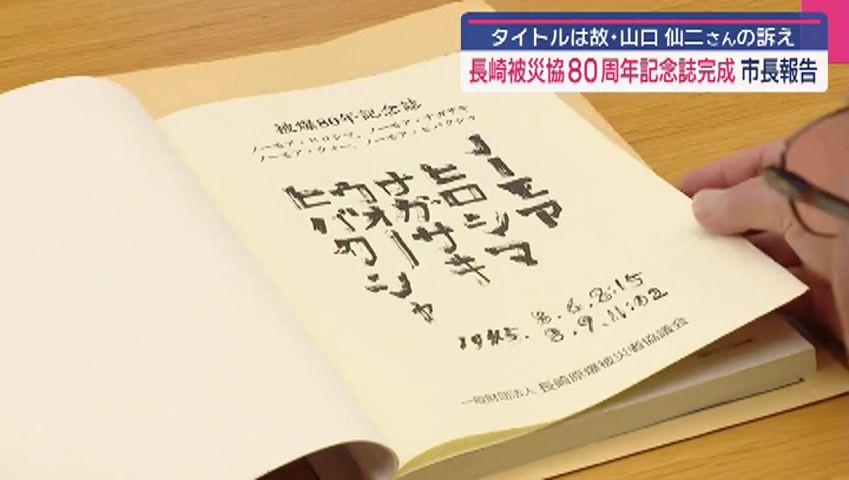 タイトルは故・山口 仙二さんの訴え
長崎被災協80周年記念誌完成 市長報告
被爆80年記念誌
ノーモア・ヒロシマ、ノーモア・ナガサキ
ノーモア・ウォー、ノーモア・ヒバクシャ
ノーモア
ヒロシマ
ナガサキ
ウオー
ヒバクシャ
1945. 8.6.8:15
8.9.11:02
一般財団法人 長崎原爆被災者協議会